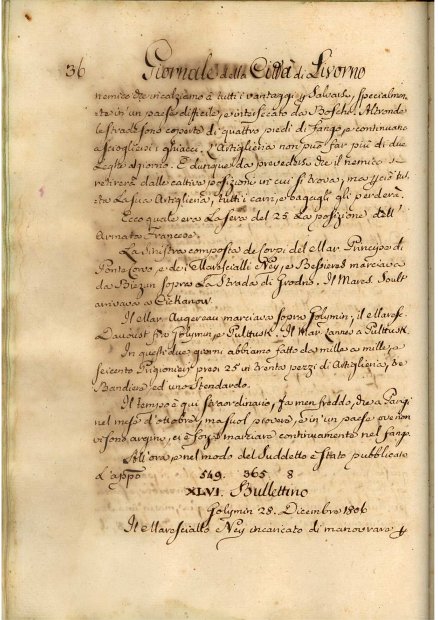 36 Giornale della Città di Livorno
nemico che incalziamo à tutti i vantaggi p salvarsi, specialmen
te in un paese difficile, e intersecato da Boschi. Altronde
le strade sono coperte di quattro piedi di fango, e continuano
a sciogliersi i ghiacci. L'Artiglieria non può far più di due
Leghe al giorno. E' dunque da prevedersi che il nemico si
retirerà dalle cattive posizioni in cui si trova, ma
ta la sua Artiglieria, tutti i carri, e bagagli gli perderà.
Ecco quale era la sera del 25. La posizione dell'
Armata Francese.
La sinistra composta de' corpi del Mar. Principe di
Ponte corvo, e dei Marescialli Ney, e Bessieres marciava
da Biezun sopra la Strada di Grodno. Il Mares. Soult
arrivava a Ciekanow.
Il Mar. Augereau marciava sopra Golymin; il Maresc.
Davoust fra Golymin, e Pulttusk. Il Mar. Lannes a Pulttusk.
In questi due giorni abbiamo fatto da mille a mille, e
seicento Prigionieri, presi 25 in trenta pezzi di Artiglieria, tre
Bandiere, ed uno Stendardo.
Il tempo è qui straordinario, fa men freddo, che a Parigi
nel mese d'ottobre, ma suol piovere, e in un paese ove non
vi sono argini, ci è forza marciare continuamente nel fango.
All'ora, e nel modo del suddetto è stato pubblicato
L'app.°
549. 365 8
XLVI. Bullettino
Golymin 28. Dicembre 1806
Il Maresciallo Ney incaricato di manovrare p